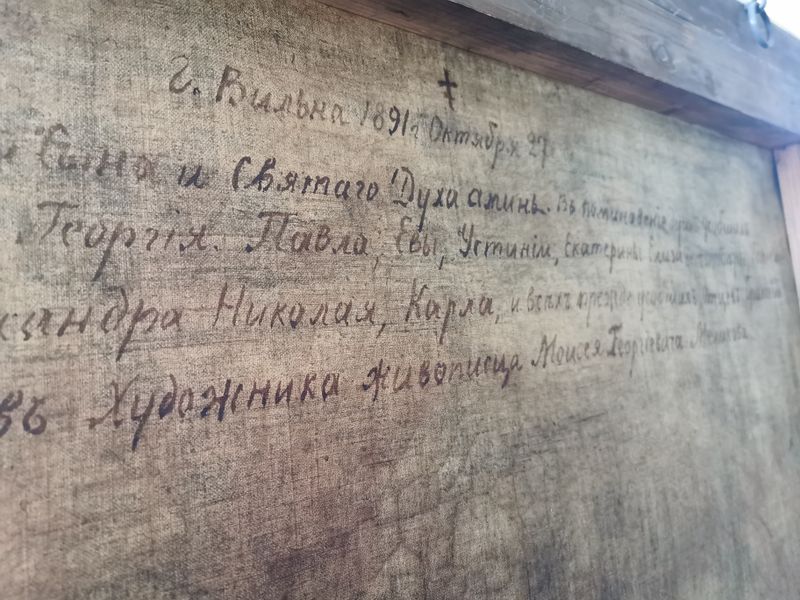 г. Вильна 1891 г Октября 27
и Сына и Святаго Духа аминь. Въ поминовеніе
Георгія. Павла, Евы, Устиніи, Екатерины
ксандра Николая, Карла, и всѣхъ прежде
въ Художника живописца Моисея Георгіевича